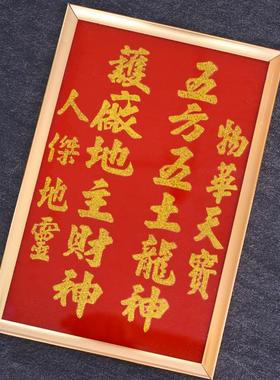 物華天寶
五方五土龍神
護廠地主財神
人傑地靈